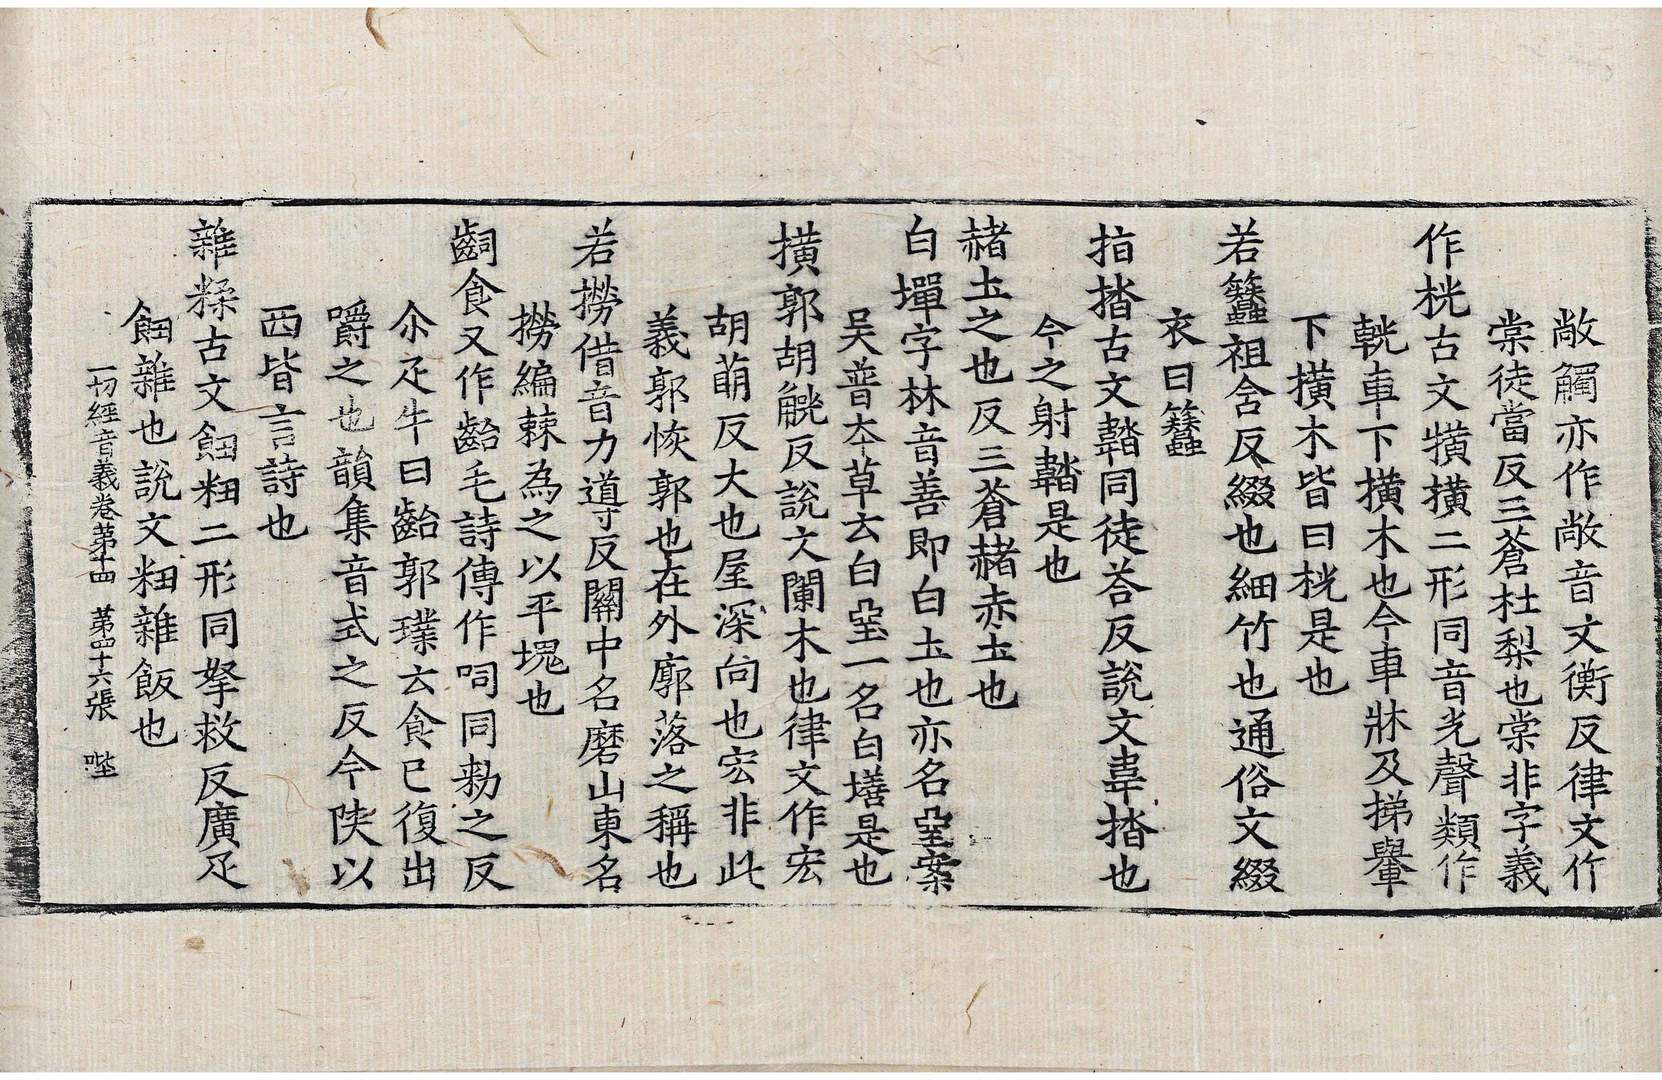 敞觸亦作敞音文衡反律文作
棠徒當反三蒼杜梨也棠非字義
作桄古文㶇橫二形同音光聲類作
軦車下橫木也今車牀及梯轝
下橫木皆曰桄是也
若簪祖含反綴也細竹也通俗文綴
衣曰簪
指揩古文鞜同徒荅反說文韋揩也
今之射鞜是也
赭土之也反三蒼赭赤土也
白墠字林音善即白土也亦名堊案
吳普本草云白堊一名白墡是也
橫郭胡觥反說文闌木也律文作宏
胡萠反大也屋深向也宏非此
義郭恢郭也在外廓落之稱也
若撈借音力導反關中名磨山東名
撈編棘為之以平塊也
齝食又作齝毛詩傳作呞同勑之反
尒疋牛曰齝郭璞云食已復出
嚼之也韻集音式之反今陝以
西皆言詩也
雜糅古文䬱粈二形同拏救反廣疋
䬱雜也說文粈雜飯也
一切經音義卷第十四 第四十六張 陛